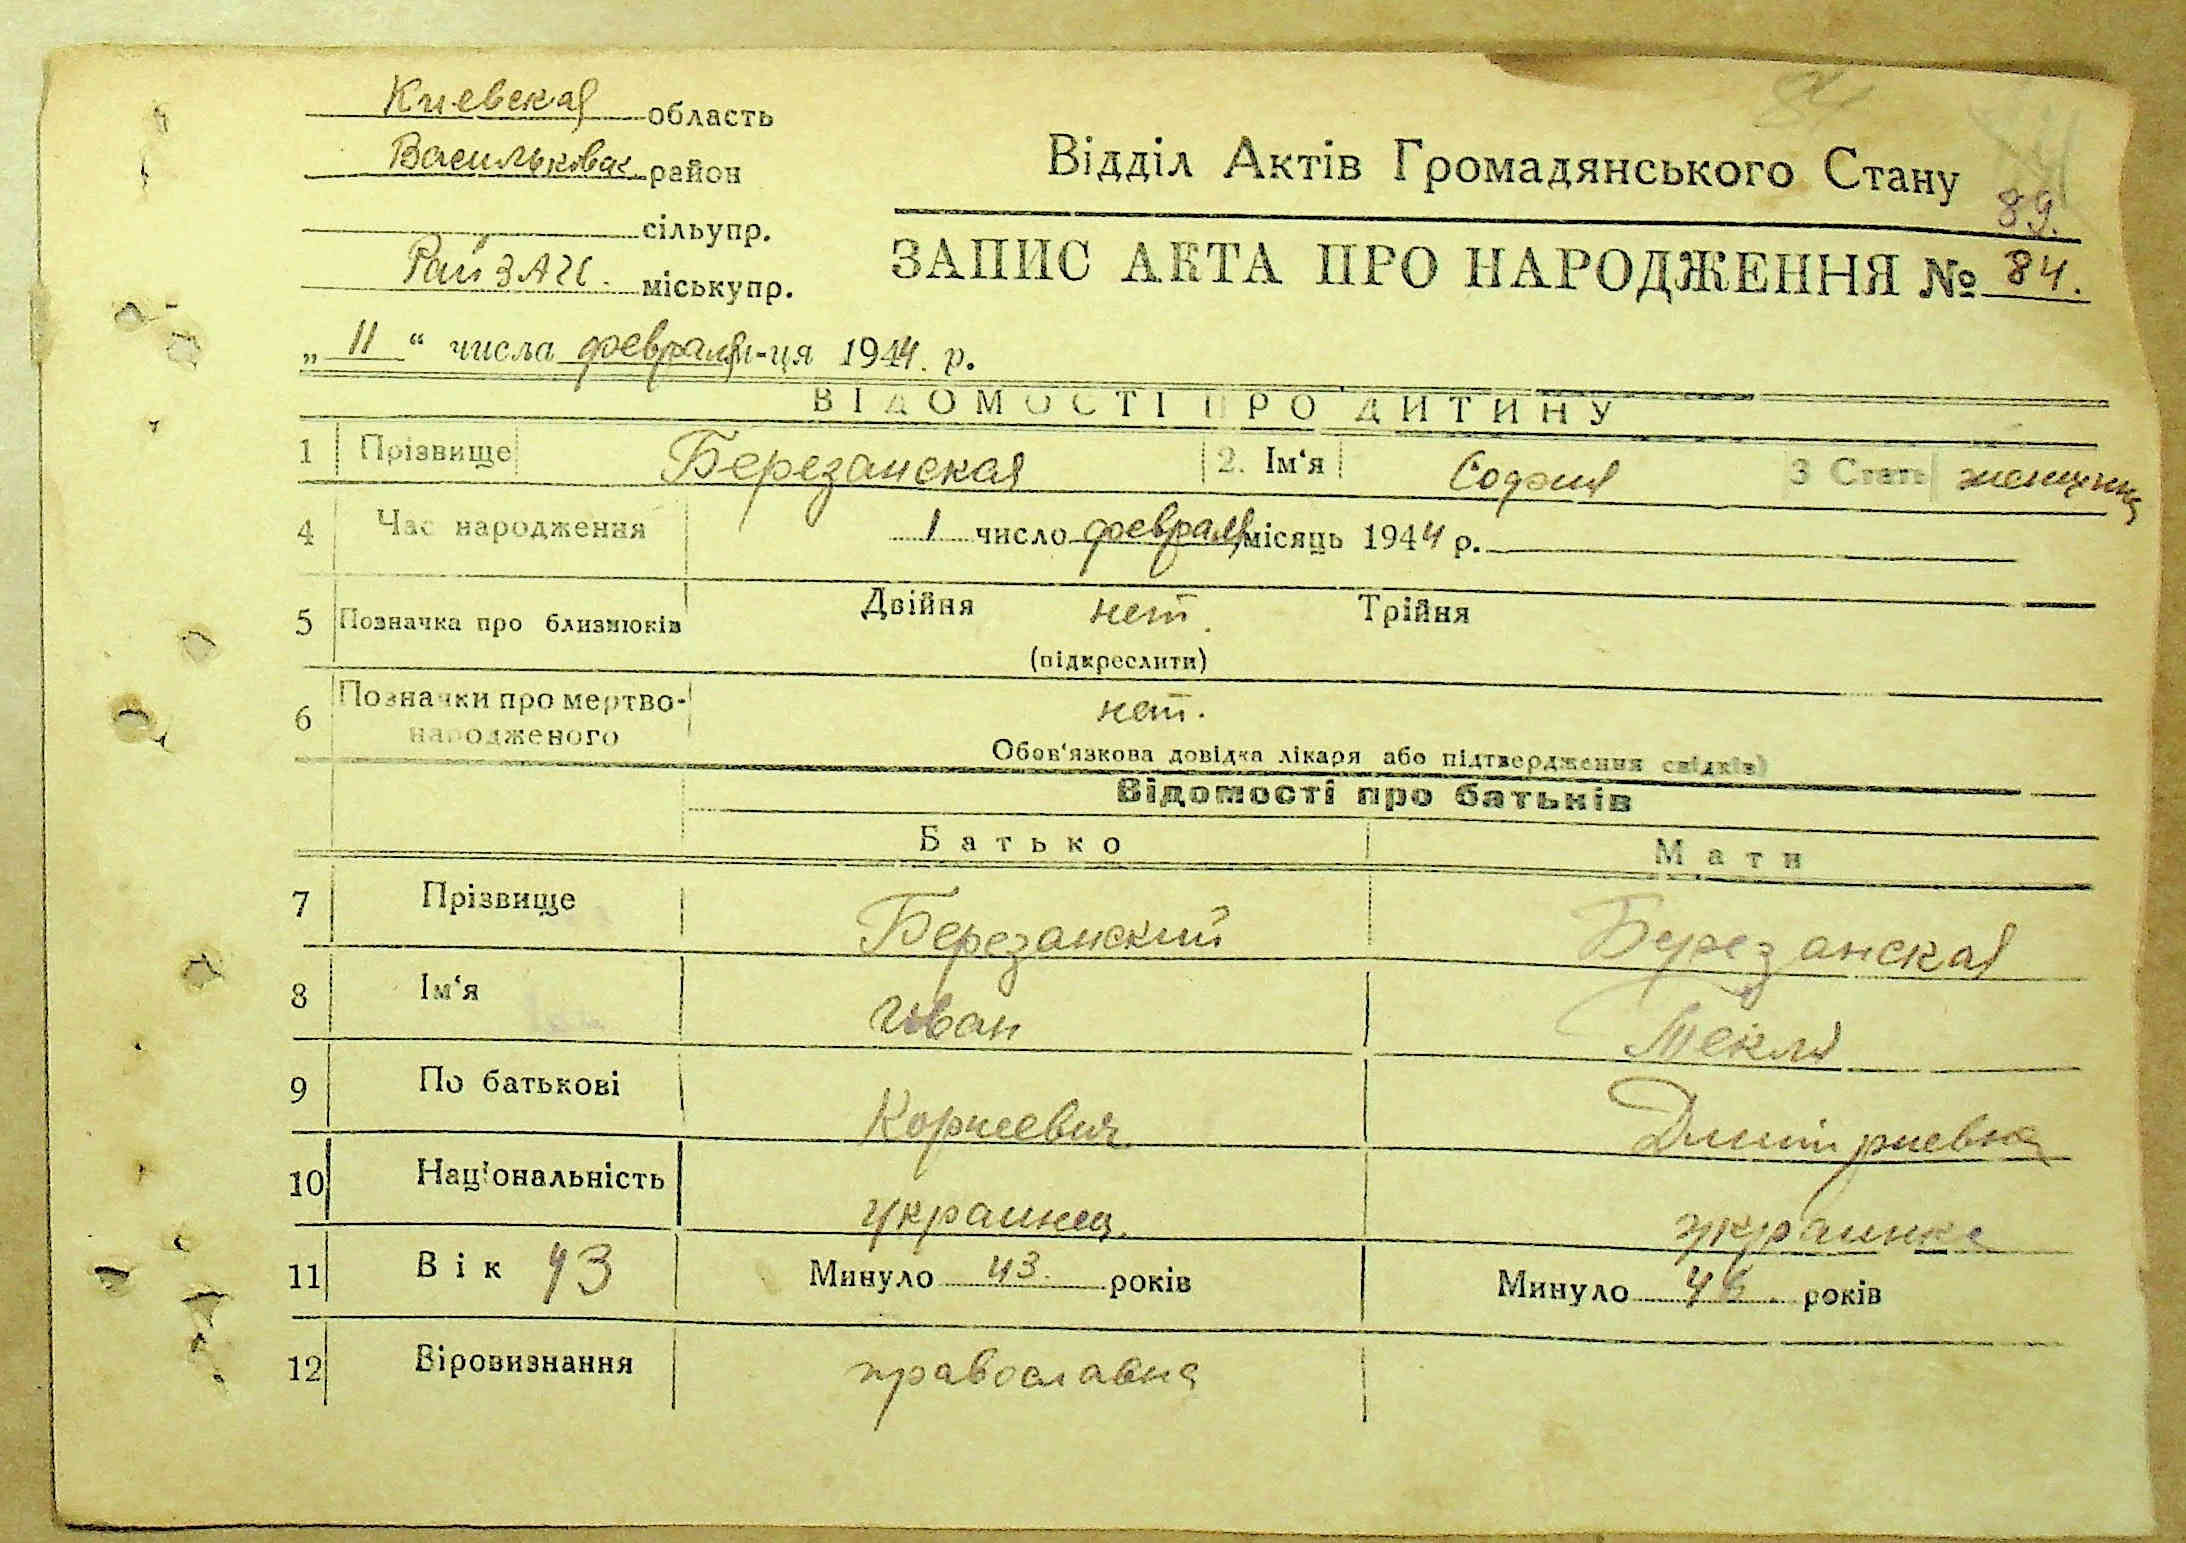 Киевская область
Васильковск район
сільупр.
Рай ЗАГС. міськупр.
Відділ Актів Громадянського Стану
89.
ЗАПИС АКТА ПРО НАРОДЖЕННЯ № 84.
„ 11 “ числа февраля м-ця 1944. р.
ВІДОМОСТІ ПРО ДИТИНУ
1 Прізвище Березанская 2. Ім‘я София 3 Стать женщина
4 Час народження 1 число февраля місяць 1944 р.
5 Позначка про близнюків Двійня нет. Трійня
(підкреслити)
6 Позначки про мертво-народженого нет.
Обов‘язкова довідка лікаря або підтвердження свідків)
Відомості про батьків
Батько Мати
7 Прізвище Березанский Березанская
8 Ім‘я Иван Текля
9 По батькові Корнеевич Дмитриевна
10 Національність украинец. украинка
11 Вік 43 Минуло 43. років Минуло років
12 Віровизнання православна